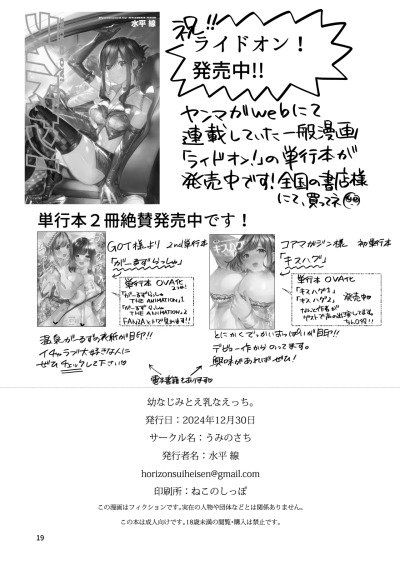 水平 線
祝!!
ライドオン！
発売中!!
ヤンマガwebにて
連載していた一般漫画
「ライドオン!」の単行本が
発売中です!全国の書店様
にて、買ってネ
単行本２冊絶賛発売中です！
GOT様より 2nd単行本
「がーるずらっしゅ」
単行本 OVA化
2巻!
「がーるずらっしゅ
THE ANIMATION」1
「がーるずらっしゅ
THE ANIMATION」2
FANZAとかで見れます!!
温泉がーるずの表紙が目印!!
イチャラブ大好きな人に
ぜひチェックして下さい
コアマガジン様 初単行本
「キスハグ」
キスハグ
単行本 OVA化
「キスハグ1」
「キスハグ2」 発売中
とにかくでっかいおっぱいが目印!!
デビュー作からのってます
興味があればぜひ!
電子書籍もあります
幼なじみとえ乳なえっち。
発行日：2024年12月30日
サークル名：うみのさち
発行者名：水平 線
horizonsuiheisen@gmail.com
印刷所：ねこのしっぽ
この漫画はフィクションです。実在の人物や団体などとは関係ありません。
この本は成人向けです。18歳未満の閲覧・購入は禁止です。
19